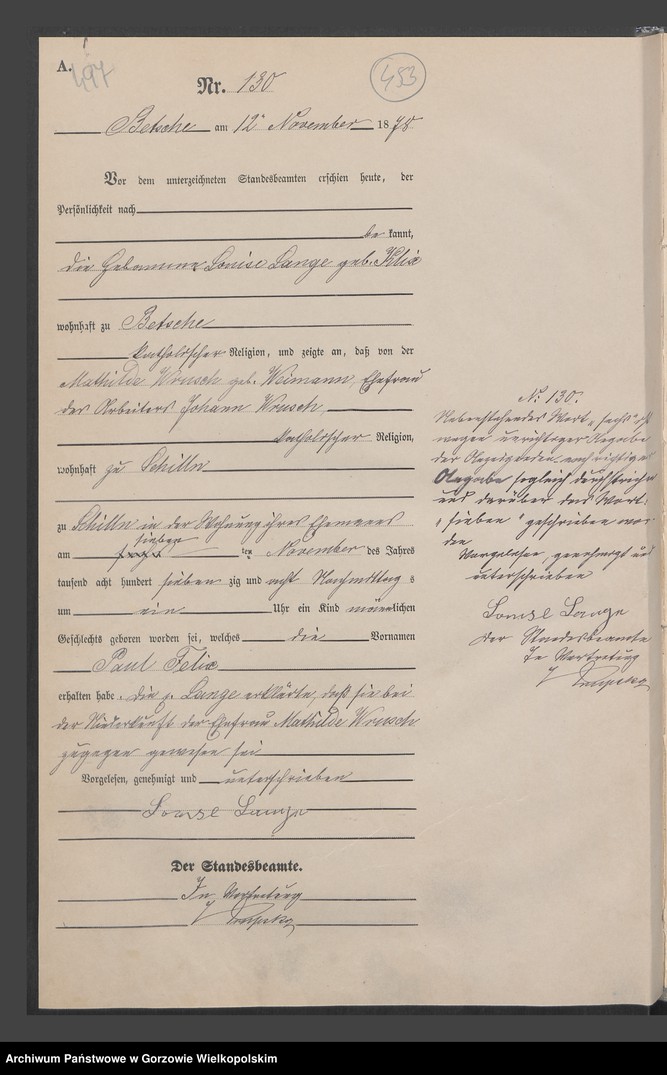 A.
497
Nr. 130
453
Betsche am 12ⁿ November 1878
Vor dem unterzeichneten Standesbeamten erschien heute, der
Persönlichkeit nach
be kannt,
die Hebamme Louise Lange geb. Klix
wohnhaft zu Betsche
katholischer Religion, und zeigte an, daß von der
Mathilde Wrusch geb. Weimann, Ehefrau
des Arbeiters Johann Wrusch,
katholischer Religion,
wohnhaft zu Schilln
zu Schilln in der Wohnung ihres Ehemanns
sieben
am sechs ten November des Jahres
tausend acht hundert sieben zig und acht Nachmittag s
um ein Uhr ein Kind männlichen
Geschlechts geboren worden sei, welches die Vornamen
Paul Felix
erhalten habe. Die p. Lange erklärte, daß sie bei
der Niederkunft der Ehefrau Mathilde Wrusch
zugegen gewesen sei
Vorgelesen, genehmigt und unterschrieben
Louise Lange
Der Standesbeamte.
In Vertretung
No. 130.
Nebenstehendes Wort „sechs" ist
wegen unrichtiger Angabe
der Anzeigenden, nach richtiger
Angabe sogleich durchstrichen
und darüber das Wort:
„sieben" geschrieben wor
den
Vorgelesen, genehmigt und
unterschrieben
Louise Lange
Der Standesbeamte
In Vertretung
Archiwum Państwowe w Gorzowie Wielkopolskim